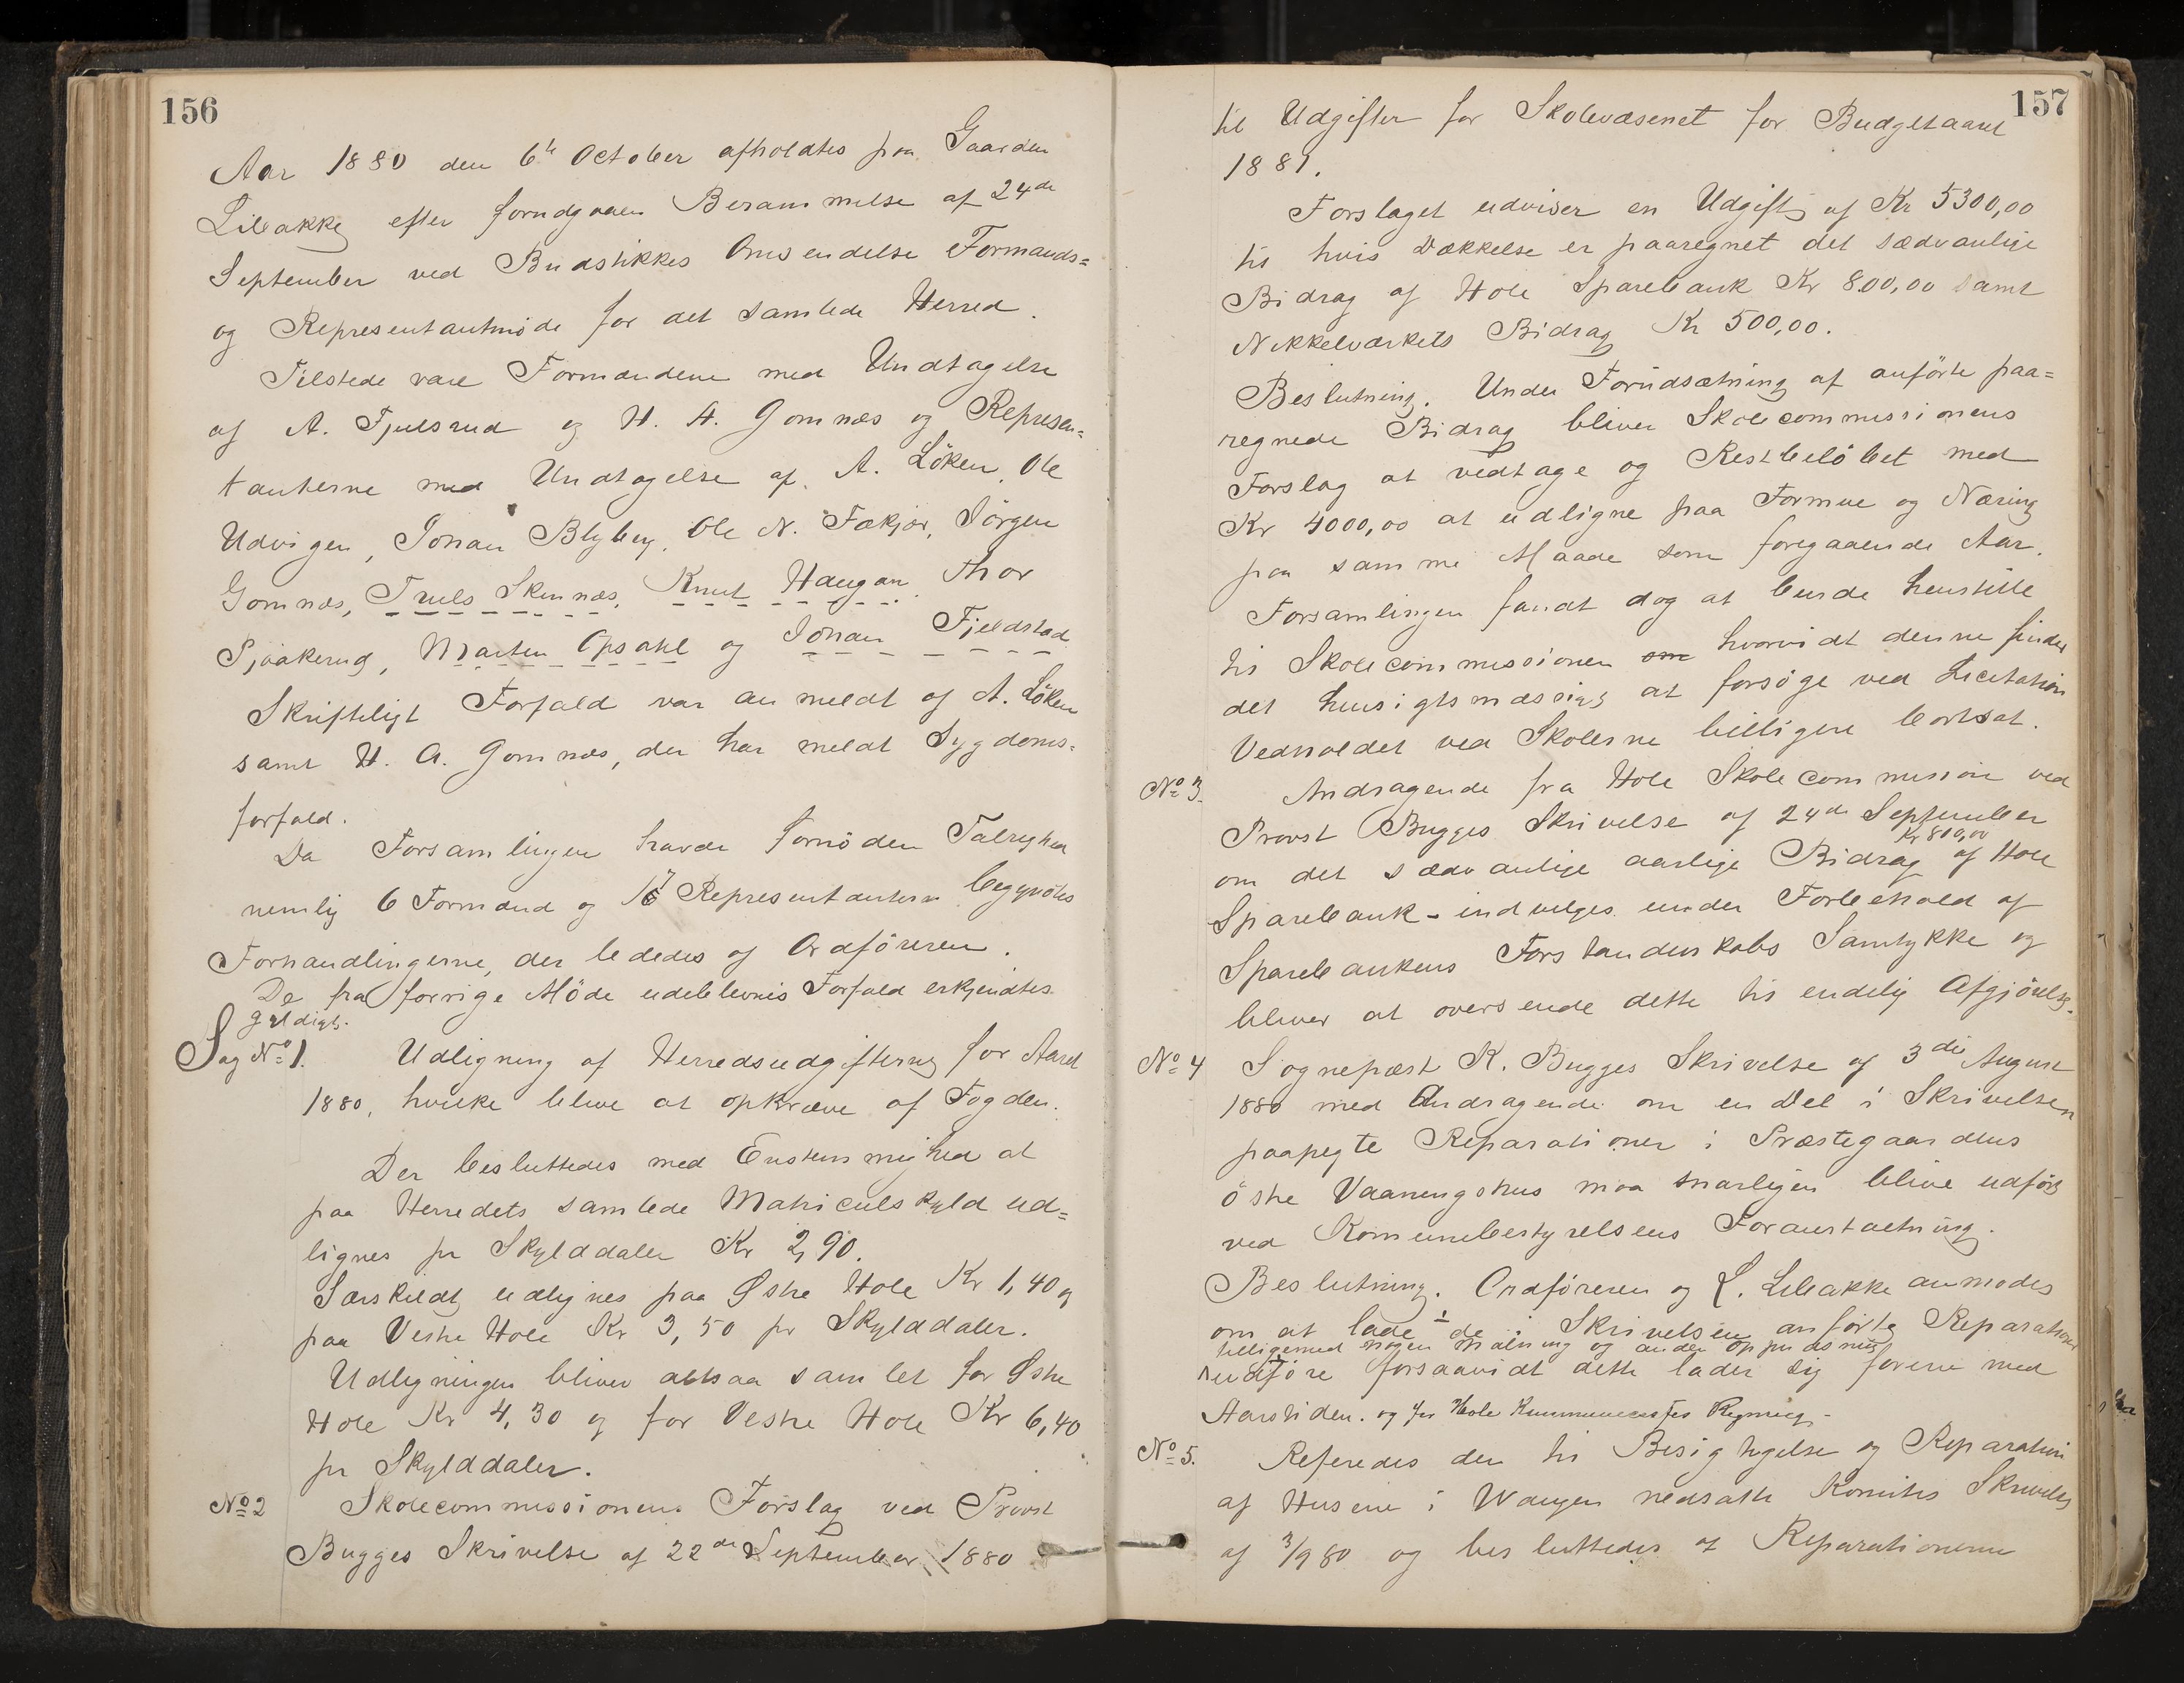 156
Aar 1880 den 6te October afholdtes paa Gaarden
Libakke efter forudgaaen Berammelse af 24de
September ved Budstikkes Omsendelse Formands=
og Representantmøde for det samlede Herred.
Tilstede vare Formændene med Undtagelse
af A. Fjulsrud og H. A. Gomnæs og Represen=
tanterne med Undtagelse af A. Löken, Ole
Udvigen, Johan Blyberg, Ole N. Fækjær, Jörgen
Gomnæs, Truls Skinnæs, Knut Haugan, Thor
Sjøakerud, Marten Opsahl og Johan Fjeldstad
Skriftligt Forfald var anmeldt af A. Löken
samt H. A. Gomnæs, der har meldt Sygdoms=
forfald.
Da Forsamlingen havde fornöden Talrighed
nemlig 6 Formænd og 17 Representanter begyndtes
Forhandlingerne, der lededes af Ordföreren.
De fra forrige Möde udeblevnes Forfald erkjendtes
gyldigt.
Sag No 1. Udligning af Herredsudgifterne for Aaret
1880, hvilke blive at opkræve af Fogden.
Der besluttedes med Enstemmighed at
paa Herredets samlede Matriculskyld ud=
lignes pr Skylddaler Kr 2,90.
Særskildt udlignes paa Østre Hole Kr 1,40 og
paa Vestre Hole Kr 3,50 pr Skylddaler.
Udligningen bliver altsaa samlet for Østre
Hole Kr 4,30 og for Vestre Hole Kr 6,40
pr Skylddaler.
No 2 Skolecommissionens Forslag ved Provst
Bugges Skrivelse af 22de September 1880
157
til Udgifter for Skolevæsenet for Budgetaaret
1881.
Forslaget udviser en Udgift af Kr 5300,00
til hvis Dækkelse er paaregnet det sædvanlige
Bidrag af Hole Sparebank Kr 800,00 samt
Nikkelværkets Bidrag Kr 500,00.
Beslutning. Under Forudsætning af anförte paa=
regnede Bidrag bliver Skolecommissionens
Forslag at vedtage og Restbelöbet med
Kr 4000,00 at udligne paa Formue og Næring
paa samme Maade som foregaaende Aar.
Forsamlingen fandt dog at burde henstille
til Skolecommissionen om hvorvidt denne finder
det hensigtsmæssigt at forsöge ved Licitation
Vedholdet ved Skolerne billigere bortsat.
No 3. Andragende fra Hole Skolecommission ved
Provst Bugges Skrivelse af 24de September
Kr 800,00
om det sædvanlige aarlige Bidrag af Hole
Sparebank - indvilges under Forbehold af
Sparebankens Forstanderskabs Samtykke og
bliver at oversende dette til endelig Afgjörelse.
No 4 Sognepræst K. Bugges Skrivelse af 3die August
1880 med Andragende om en Del i Skrivelsen
paapegte Reparationer i Præstegaardens
östre Vaaningshus maa snarligen blive udfört
ved Komunebestyrelsens Foranstaltning.
Beslutning. Ordföreren og L. Libakke anmodes
om at lade de i Skrivelsen anförte Reparationer
tilligemed nogen Malning og anden Oppudsning
udföre forsaavidt dette lader sig forene med
Aarstiden. og for Hole Kummunecasses Regning.
No 5. Referedes den til Besigtigelse og Reparation
af Husene i Waagen nedsatte Komites Skrivelse
af 3/9 80 og besluttedes at Reparationerne